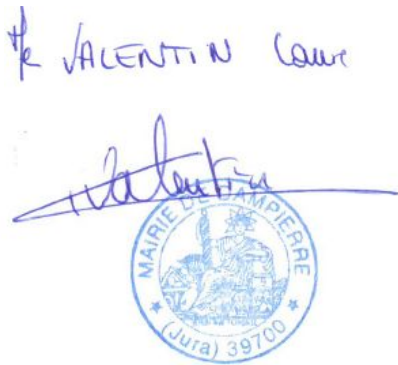 VALENTIN
Valentin
MAIRIE DE DAMPIERRE
(Jura) 39700